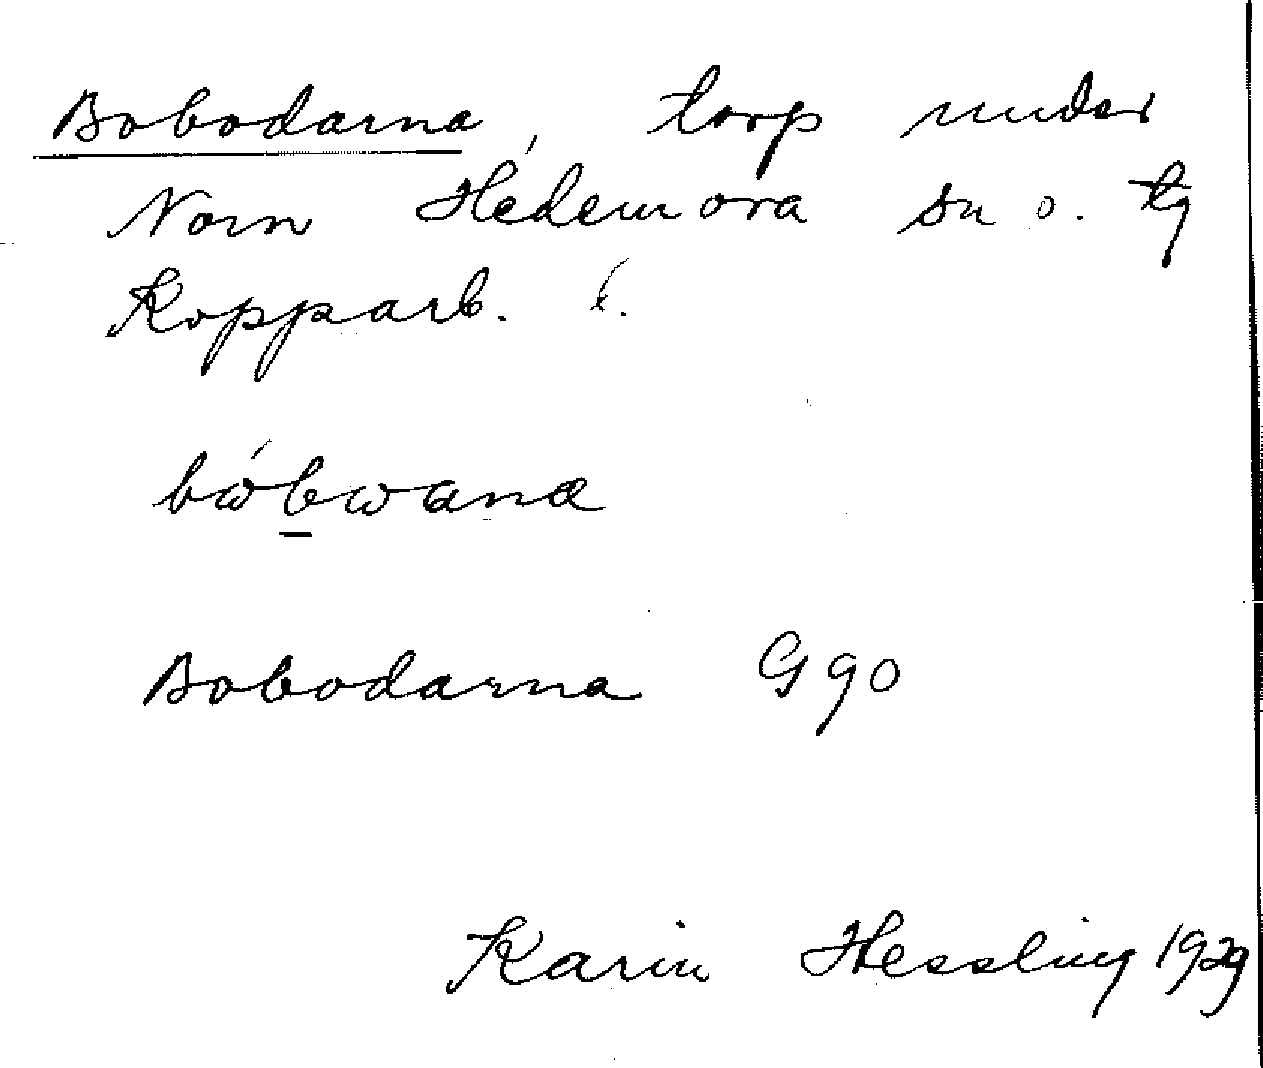 Bobodarna, torp under
Norn Hedemora sn o. tg
Kopparb. l.
bẃbwana
Bobodarna G 90
Karin Hessling 1929